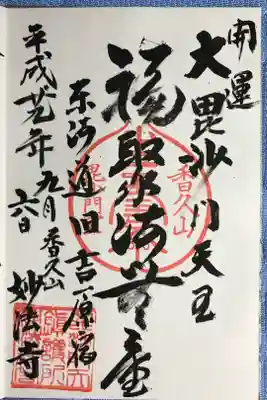 開運
大毘沙門天王
香久山
福聚海無量
毘沙門
東海道旧吉原宿
香久山 妙法寺
平成廿九年九月
六日